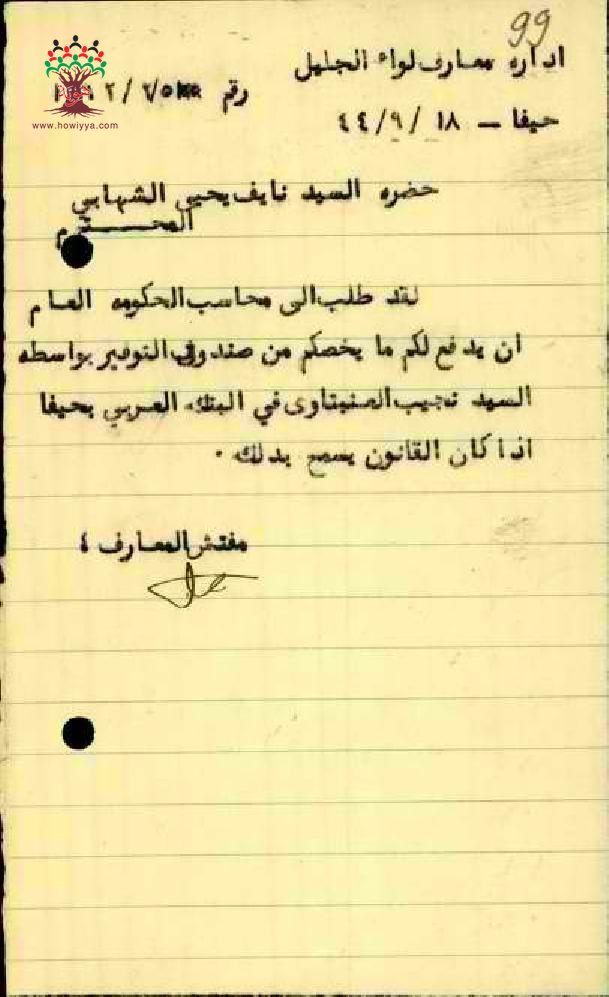 99
اداره معارف لواء الجليل
رقم
حيفا — ١٨ /٩/ ٤٤
www.howiyya.com
حضره السيد نايف يحيى الشهابي
المحـــــترم
لقد طلب الى محاسب الحكومه العام
ان يدفع لكم ما يخصكم من صندوق التوفير بواسطه
السيد نجيب في البنك العربي بحيفا
اذا كان القانون يسمح بذلك .
مفتش المعارف ٤